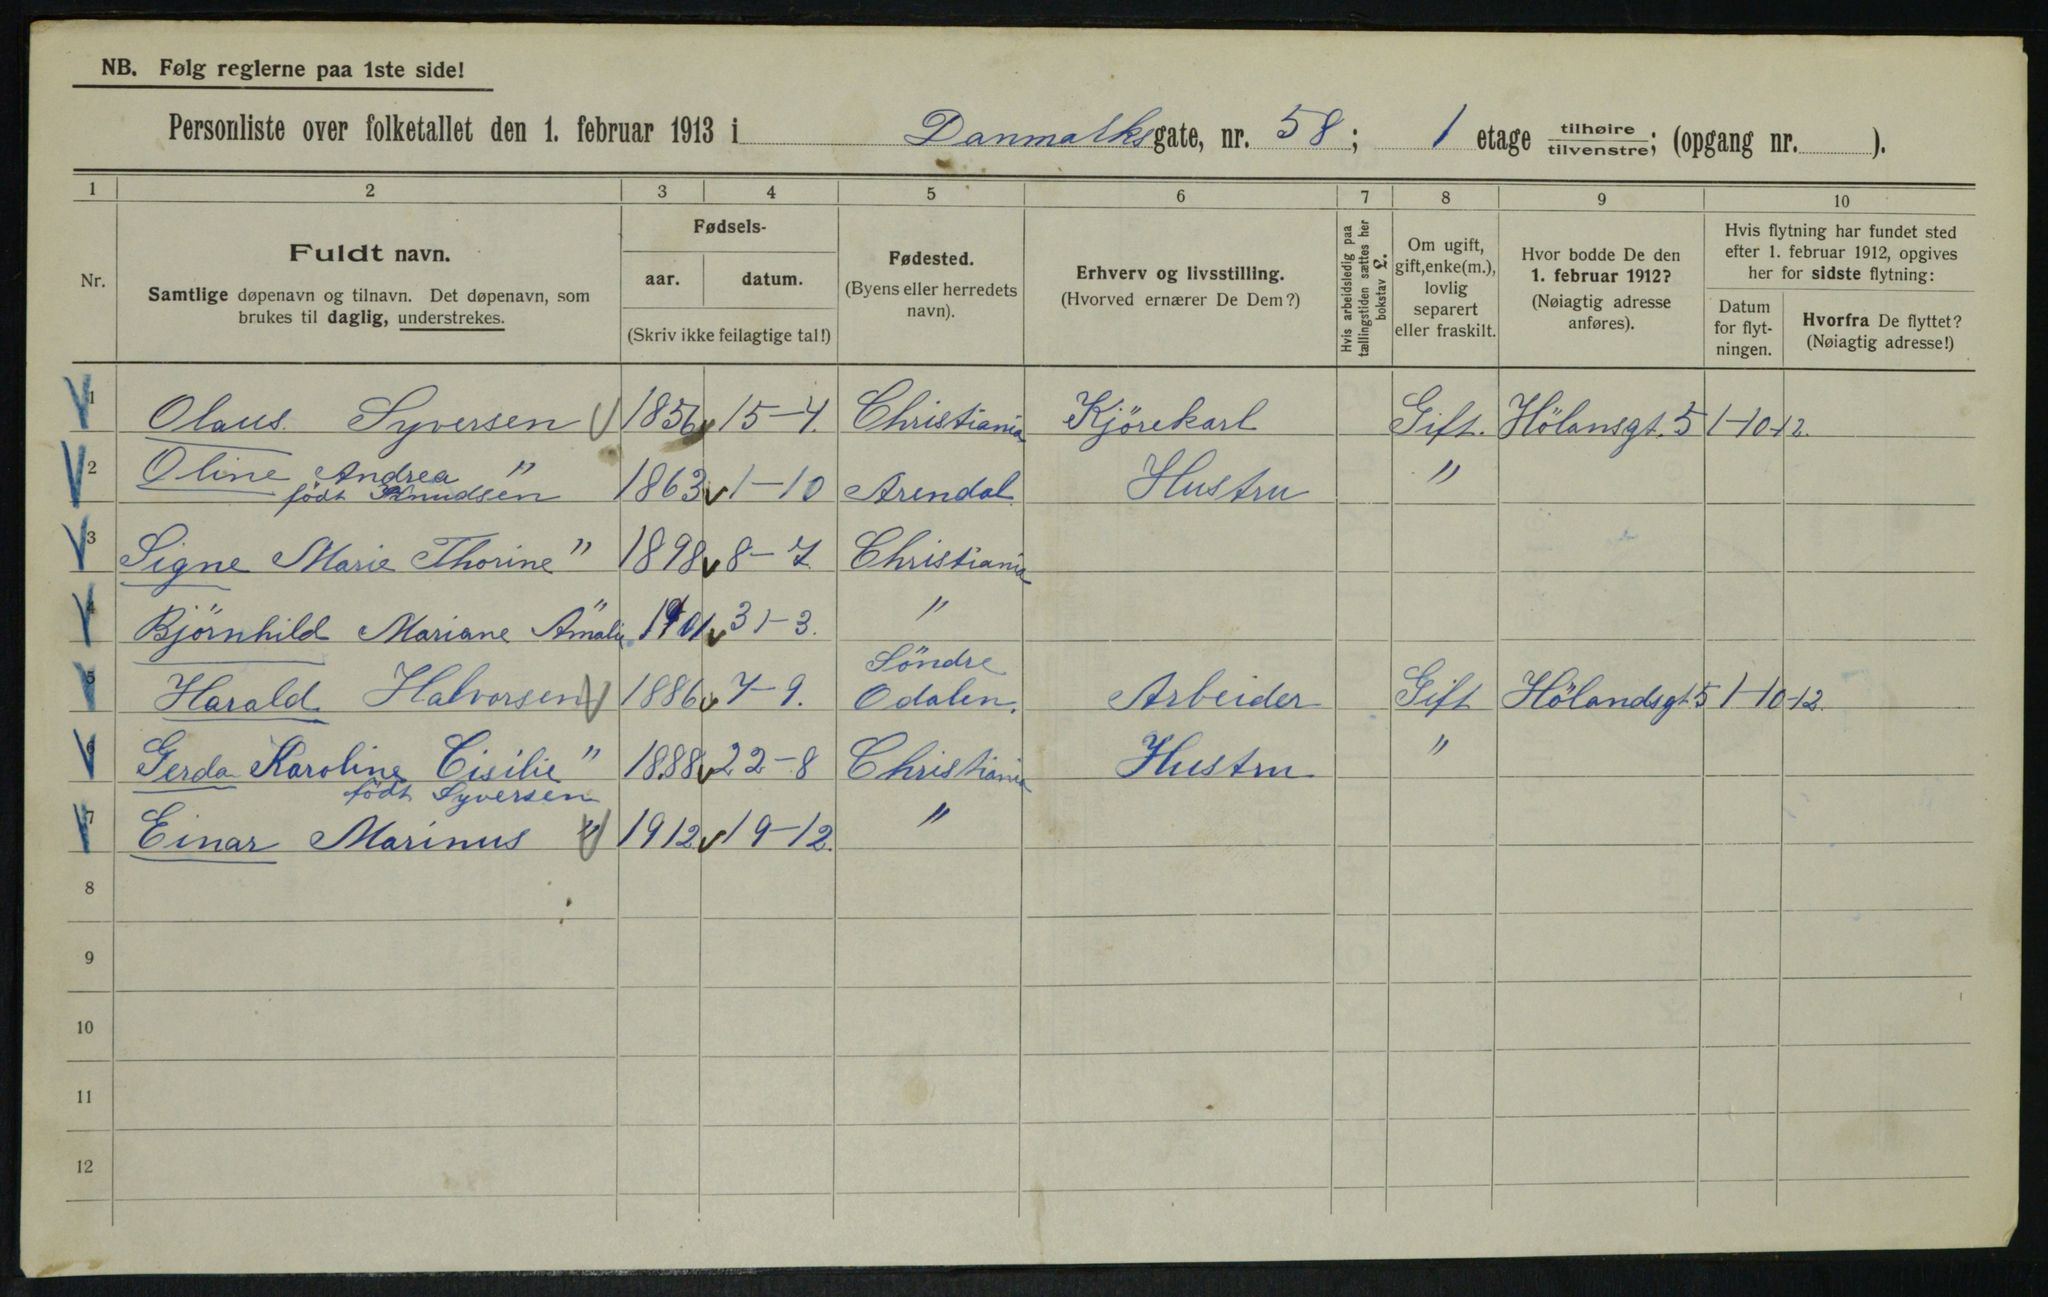 NB. Følg reglerne paa 1ste side!
Personliste over folketallet den 1. februar 1913 i Danmarksgate, nr. 58; 1 etage tilhøire/tilvenstre; (opgang nr. ).
1 2 3 4 5 6 7 8 9 10
Nr.
Fuldt navn.
Samtlige døpenavn og tilnavn. Det døpenavn, som
brukes til daglig, understrekes.
Fødsels-
aar. datum.
(Skriv ikke feilagtige tal!)
Fødested.
(Byens eller herredets
navn).
Erhverv og livsstilling.
(Hvorved ernærer De Dem?)
Hvis arbeidsledig paa
tællingstiden sættes her
bokstav £.
Om ugift,
gift, enke(m.),
lovlig
separert
eller fraskilt.
Hvor bodde De den
1. februar 1912?
(Nøiagtig adresse
anføres).
Hvis flytning har fundet sted
efter 1. februar 1912, opgives
her for sidste flytning:
Datum
for flyt-
ningen.
Hvorfra De flyttet?
(Nøiagtig adresse!)
1 Olaus Syversen 1856 15-4. Christiania Kjörekarl Gift. Hölansgt. 5 1-10-12.
2 Oline Andrea "
födt Knudsen 1863 1-10 Arendal. Hustru "
3 Signe Marie Thorine " 1898 8-7 Christiania
4 Björnhild Mariane Amalie " 1901 31-3. "
5 Harald Halvorsen 1886 7-9. Söndre
Odalen. Arbeider Gift Hölandsgt 5 1-10-12.
6 Gerda Karoline Cisilie " 1888 22-8 Christiania Hustru "
födt Syversen
7 Einar Marinus " 1912 19-12. "
8
9
10
11
12